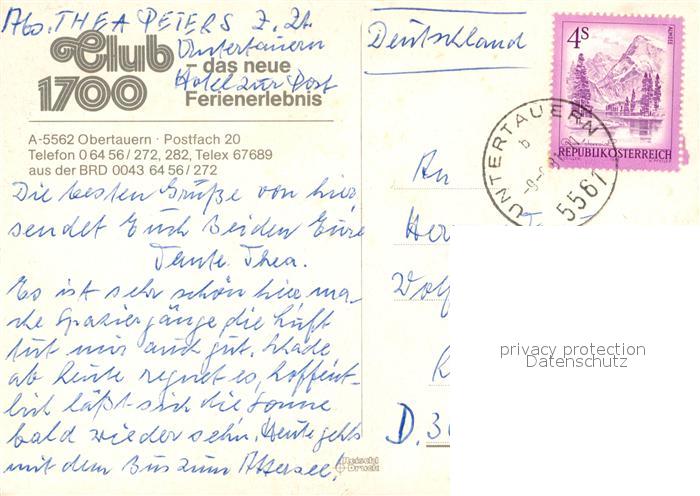 Abs. THEA PETERS z. Zt.
Untertauern
Hotel zur Post
Club
1700
– das neue
Ferienerlebnis
A-5562 Obertauern · Postfach 20
Telefon 0 64 56 / 272, 282, Telex 67689
aus der BRD 0043 64 56 / 272
Die besten Grüße von hier,
sendet Euch beiden Eure
Tante Thea.
Es ist sehr schön hier ma-
che Spaziergänge die Luft
tut mir auch gut. Schade
ab heute regnet es, hoffent-
lich läßt sich die Sonne
bald wieder sehn. Heute gehts
mit dem Bus zum Attersee!
Deutschland
4S
REPUBLIK ÖSTERREICH
UNTERTAUERN
b
5561
An
Her
Wolf
K
D. 3
privacy protection
Datenschutz
Reischl
Druck